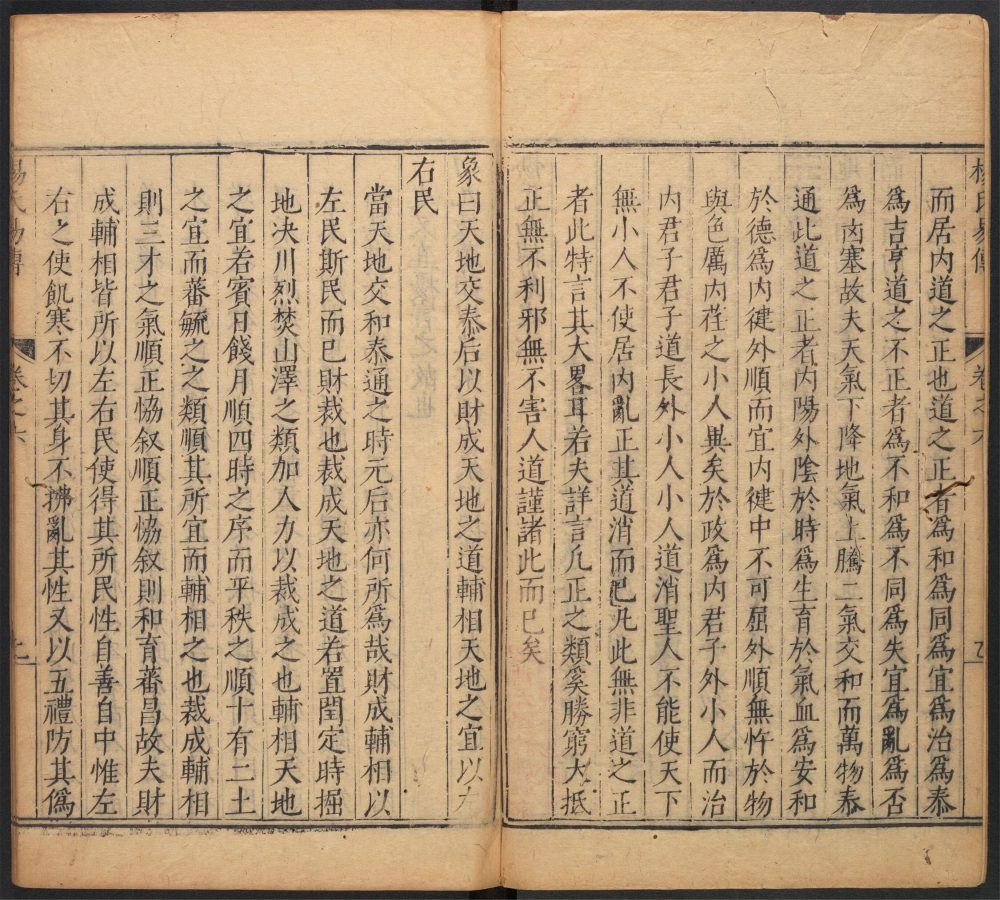 楊氏易傳 卷之六
而居内道之正也道之正者爲和爲同爲宜爲治爲泰
爲吉亨道之不正者爲不和爲不同爲失宜爲亂爲否
爲㐫塞故夫天氣下降地氣上騰二氣交和而萬物泰
通此道之正者内陽外隂於時爲生育於氣血爲安和
於德爲内健外順而宜内健中不可屈外順無忤於物
與色厲内荏之小人異矣於政爲内君子外小人而治
内君子君子道長外小人小人道消聖人不能使天下
無小人不使居内亂正其道消而巳凡此無非道之正
者此特言其大畧耳若夫詳言凡正之類奚勝窮大抵
正無不利邪無不害人道謹諸此而巳矣
象曰天地交泰后以財成天地之道輔相天地之宜以左
右民
當天地交和泰通之時元后亦何所爲哉財成輔相以
左民斯民而巳財裁也裁成天地之道若置閏定時掘
地决川烈焚山澤之類加人力以裁成之也輔相天地
之宜若賓日餞月順四時之序而平秩之順十有二土
之宜而蕃毓之之類順其所宜而輔相之也裁成輔相
則三才之氣順正恊叙順正恊叙則和育蕃昌故夫財
成輔相皆所以左右民使得其所民性自善自中惟左
右之使飢寒不切其身不拂亂其性又以五禮防其僞
楊氏易傳 卷之六